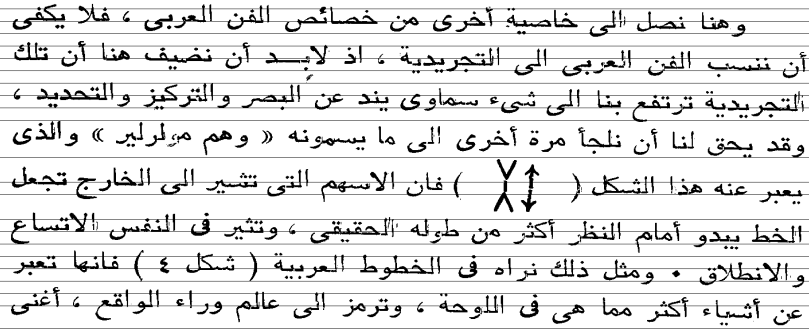 وهنا نصل الى خاصية أخرى من خصائص الفن العربى ، فلا يكفى
أن ننسب الفن العربى الى التجريدية ، اذ لابد أن نضيف هنا أن تلك
التجريدية ترتفع بنا الى شىء سماوى يند عن البصر والتركيز والتحديد ،
وقد يحق لنا أن نلجأ مرة أخرى الى ما يسمونه « وهم مولرلير » والذى
يعبر عنه هذا الشكل ( ) فان الاسهم التى تشير الى الخارج تجعل
الخط يبدو أمام النظر أكثر من طوله الحقيقى ، وتثير فى النفس الاتساع
والانطلاق . ومثل ذلك نراه فى الخطوط العربية ( شكل ٤ ) فانها تعبر
عن أشياء أكثر مما هى فى اللوحة ، وترمز الى عالم وراء الواقع ، أغنى